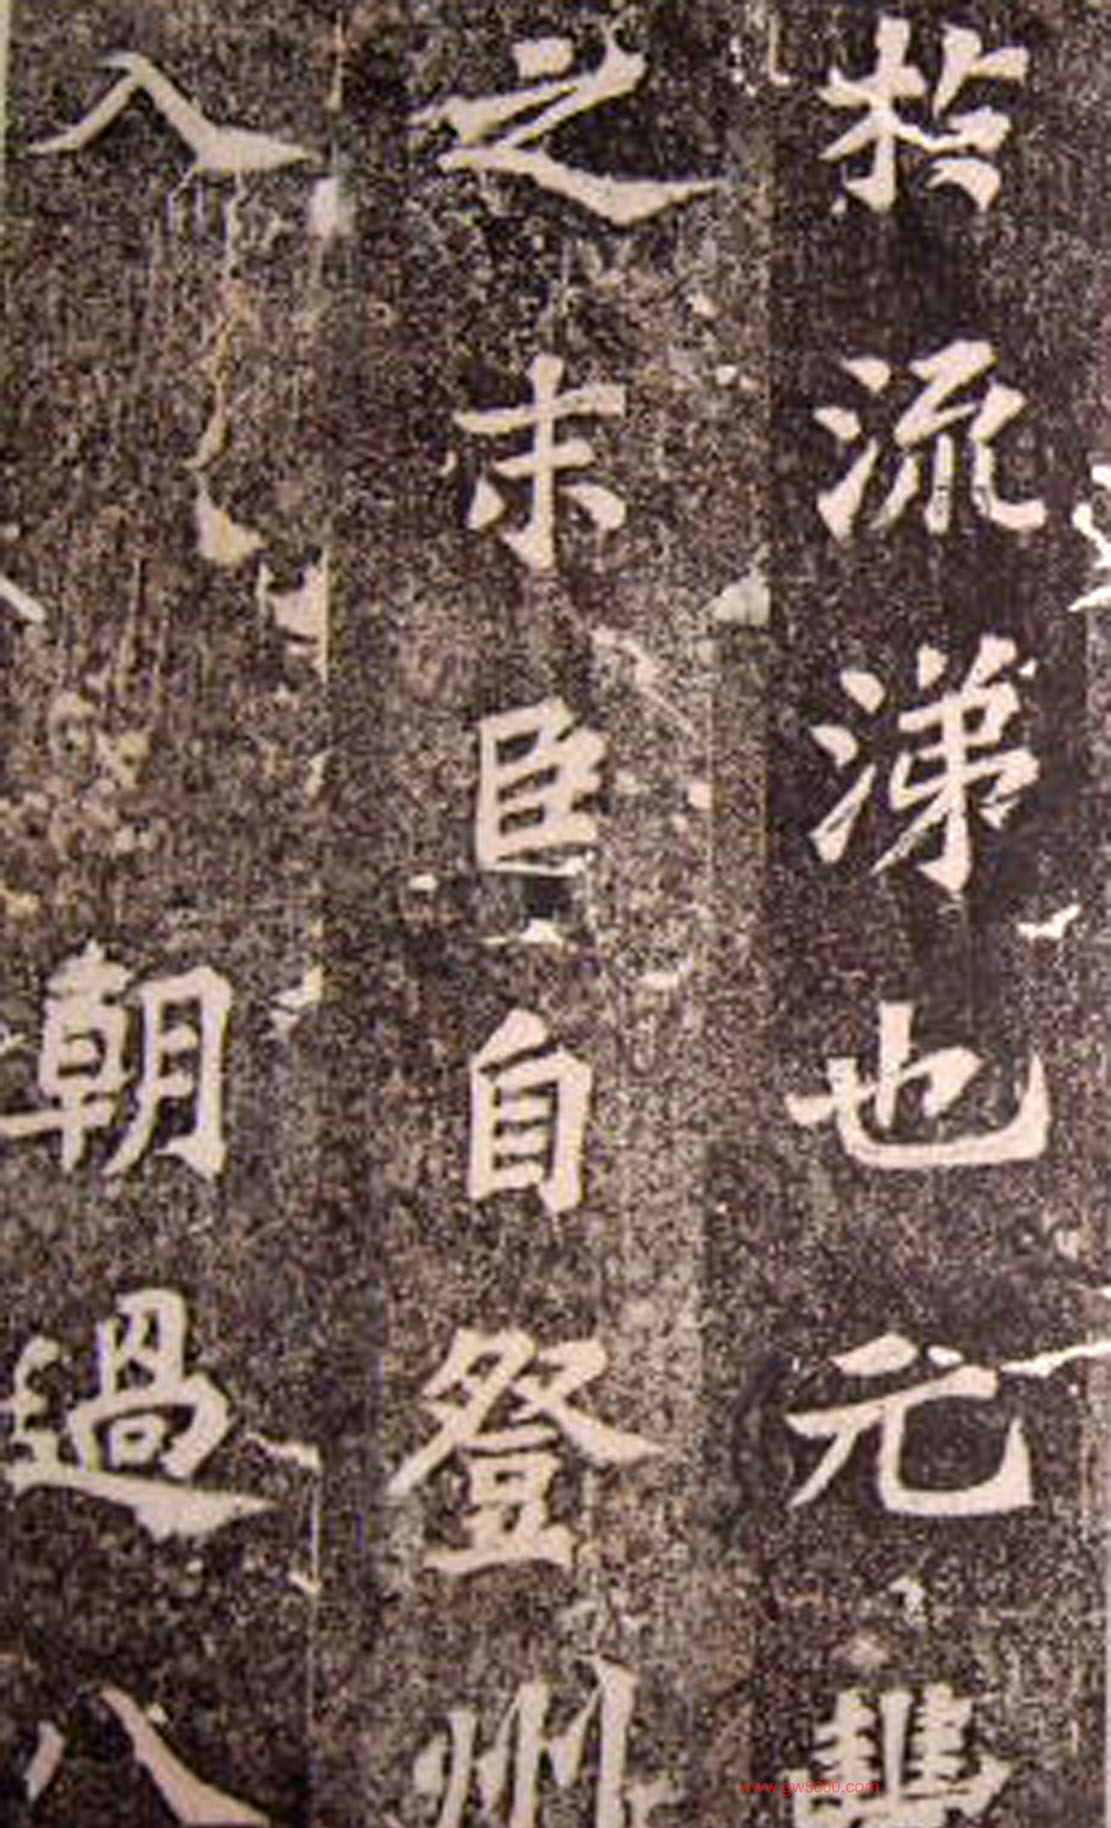 拈流涕也元豐
之末臣自登州
入朝過八
www.gw8000.com